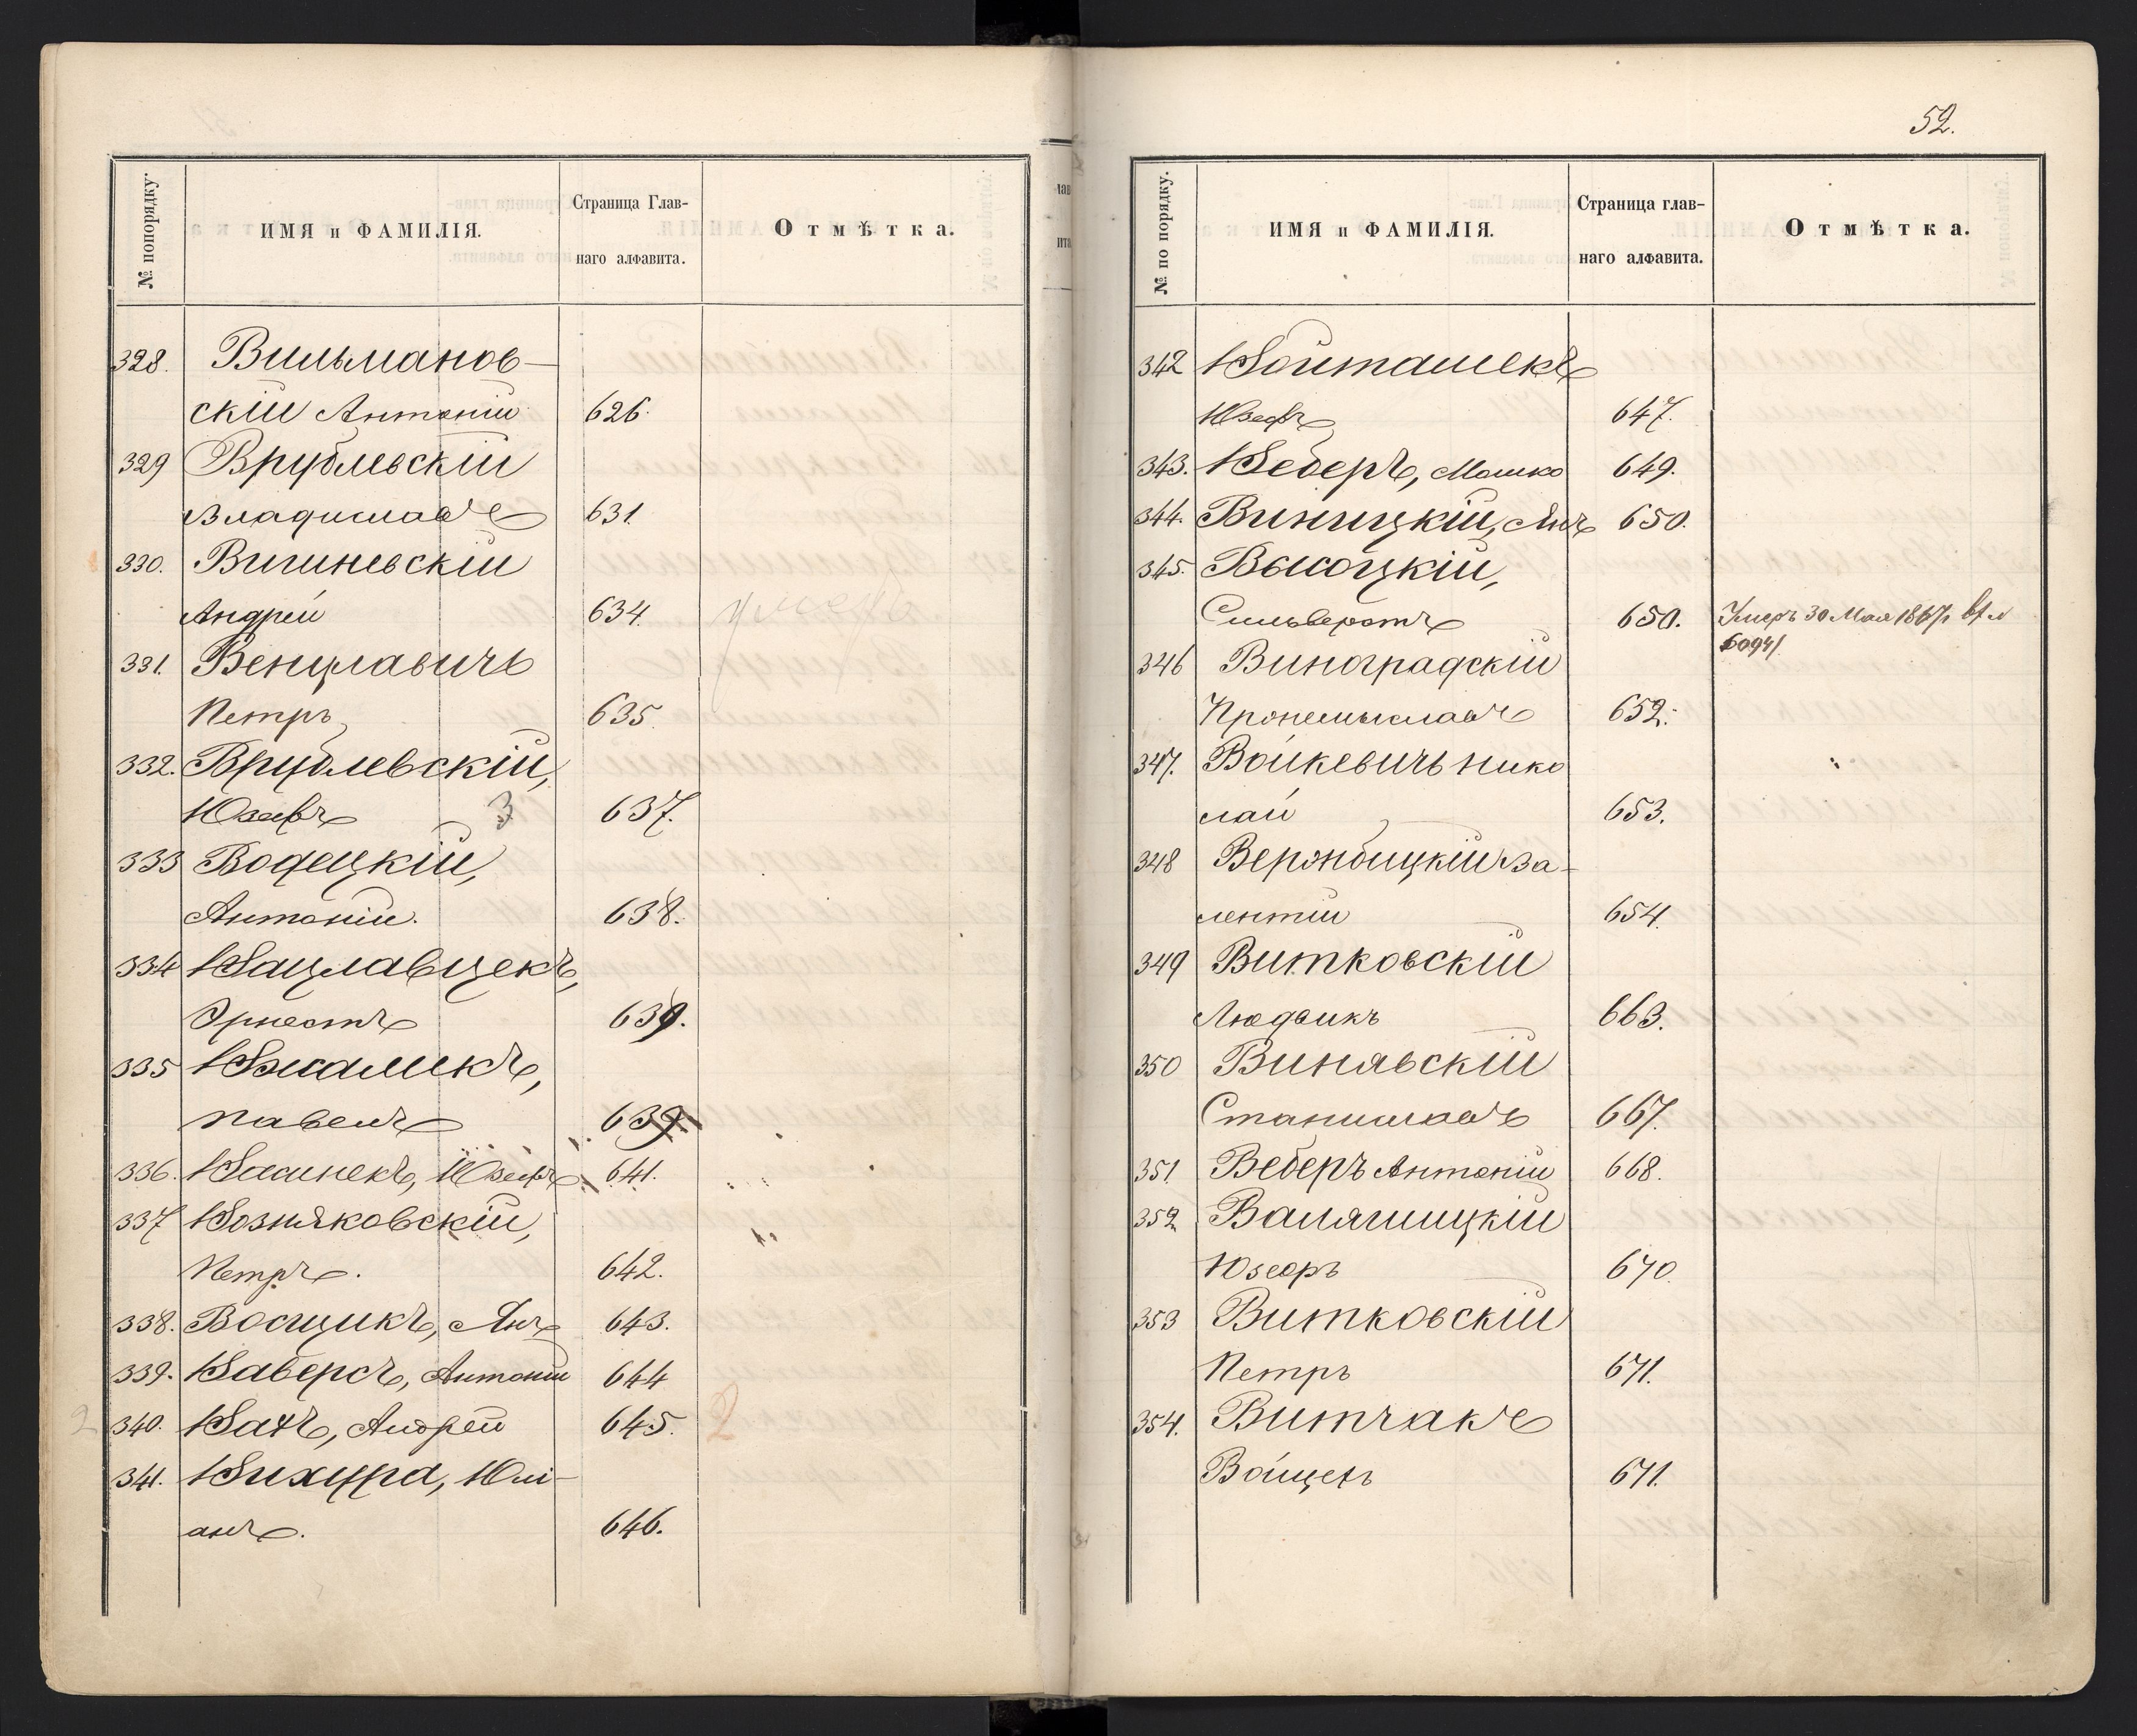 № попорядку.
ИМЯ и ФАМИЛІЯ.
Страница Глав-
наго алфавита.
Отмѣтка.
328. Вильманов-
скій Антоній 626.
329 Врублевскій
Владиславъ 631.
330. Вишневскій
Андрей 634. умеръ
331. Венцлавичъ
Петръ 635.
332. Врублевскій,
Юзефъ 3 637.
333 Водецкій,
Антоній. 638.
334 Вацлавцекъ,
Эрнестъ 639.
335
Павелъ 639.
336. Юзефъ 641.
337 Возняковскій,
Петръ. 642.
338. Янъ 643.
339. Ваверсъ, Антоній 644
2 340. Андрей 645. 2
341. Вихура, Юлі-
анъ. 646.
52.
№ по порядку.
ИМЯ и ФАМИЛІЯ.
Страница глав-
наго алфавита.
Отмѣтка.
342 Войташекъ
Юзефъ 647.
343. Веберъ, Мошко 649.
344. Виницкій, Янъ 650.
345. Высоцкій,
Сильверстъ 650. Умеръ 30 Мая 1867г.
6094/
346 Виноградскій
652.
347. Войкевичъ Нико
лай 653.
348 Вержбицкій Ва-
лентій 654.
349 Витковскій
Людвикъ 663.
350 Винявскій
Станиславъ 667.
351. Веберъ Антоній 668.
352
Юзефъ 670.
353 Витковскій
Петръ 671.
354. Витчакъ
Войцехъ 671.